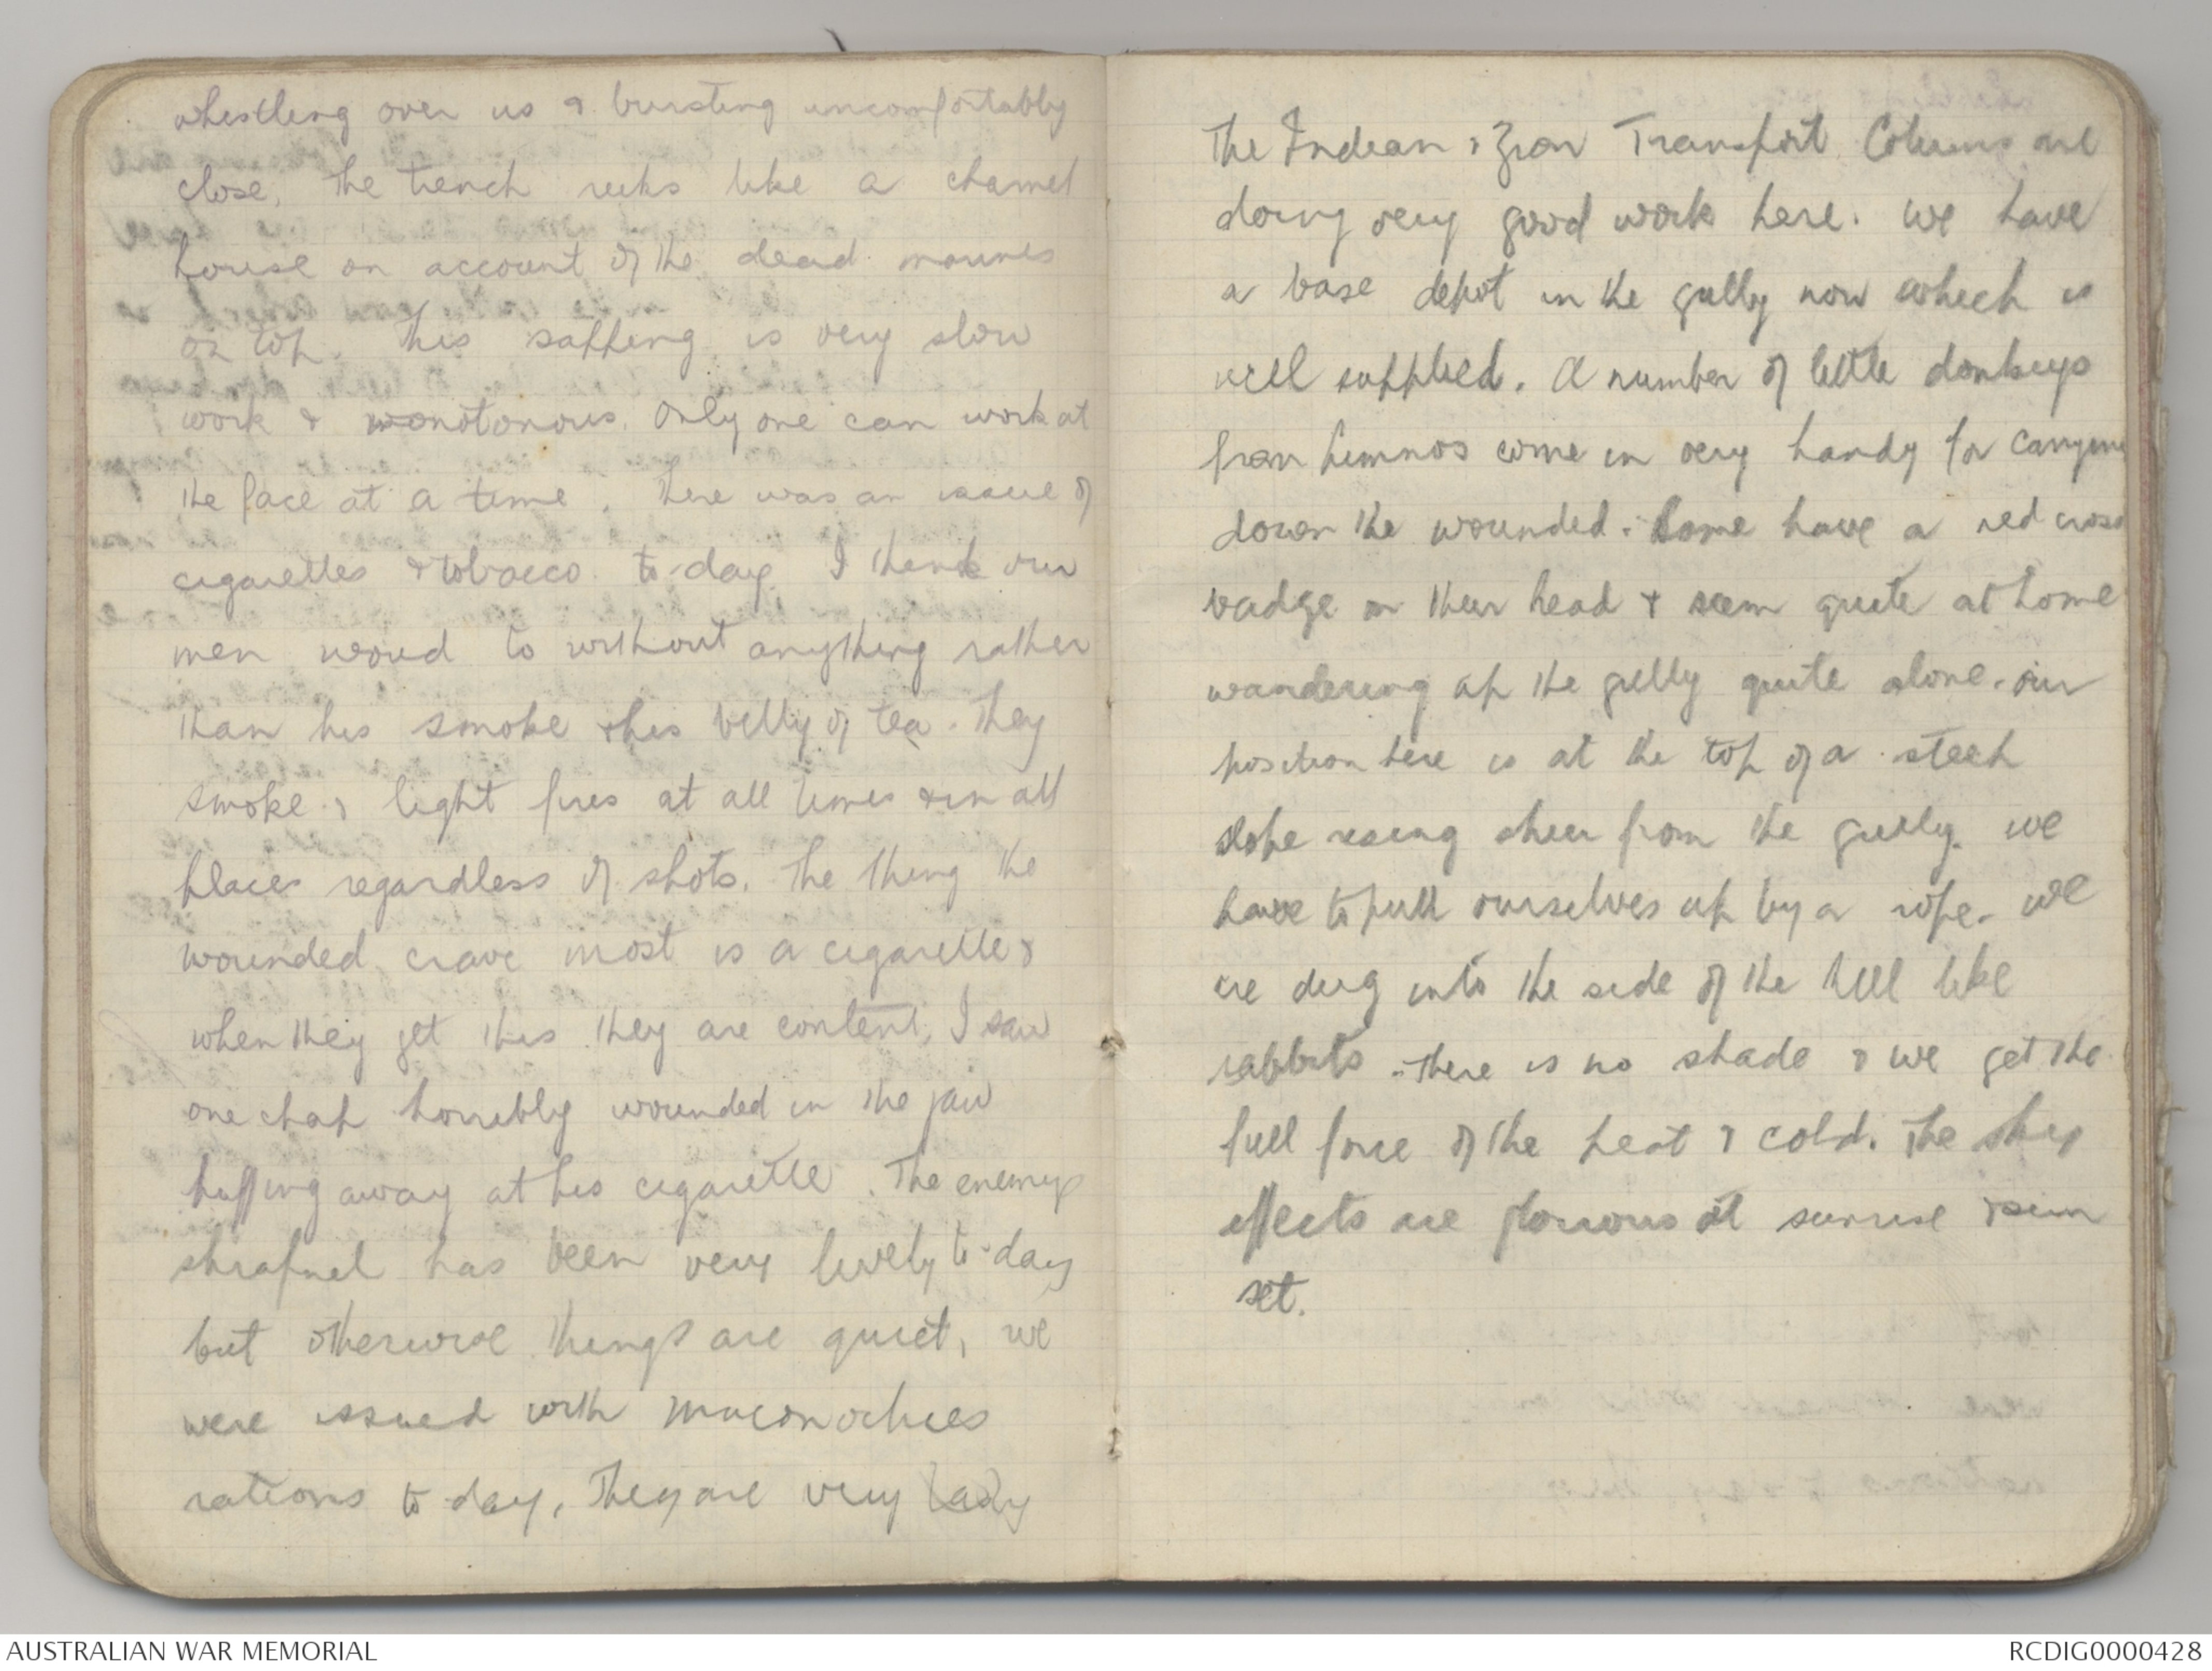 whistling over us & bursting uncomfortably
close. The trench reeks like a charnel
house on account of the dead marines
on top. This sapping is very slow
work & monotonous. Only one can work at
the face at a time. There was an issue of
cigarettes & tobacco to-day. I think our
men woud to without anything rather
than his smoke & his billy of tea. They
smoke & light fires at all times & in all
places regardless of shots. The thing the
wounded crave most is a cigarette &
when they get this they are content, I saw
one chap horribly wounded in the jaw
puffing away at his cigarette. The enemys
shrapnel has been very lively to-day
but otherwise things are quiet, we
were issued with Maconochies
rations to day, They are very
The Indian & Zion Transport Colums are
doing very good work here. We have
a base depot in the gully now which is
well supplied. A number of little donkeys
from Lemnos come in very handy for carrying
down the wounded. Some have a red cross
badge on their head & seem quite at home
wandering up the gully quite alone. Our
position here is at the top of a steep
slope rising sheer from the gully. We
have to pull ourselves up by a rope. We
are dug into the side of the hill like
rabbits. There is no shade & we get the
full force of the heat & cold. The sky
effects are glorious at sunrise & sun
set.
AUSTRALIAN WAR MEMORIAL
RCDIG0000428